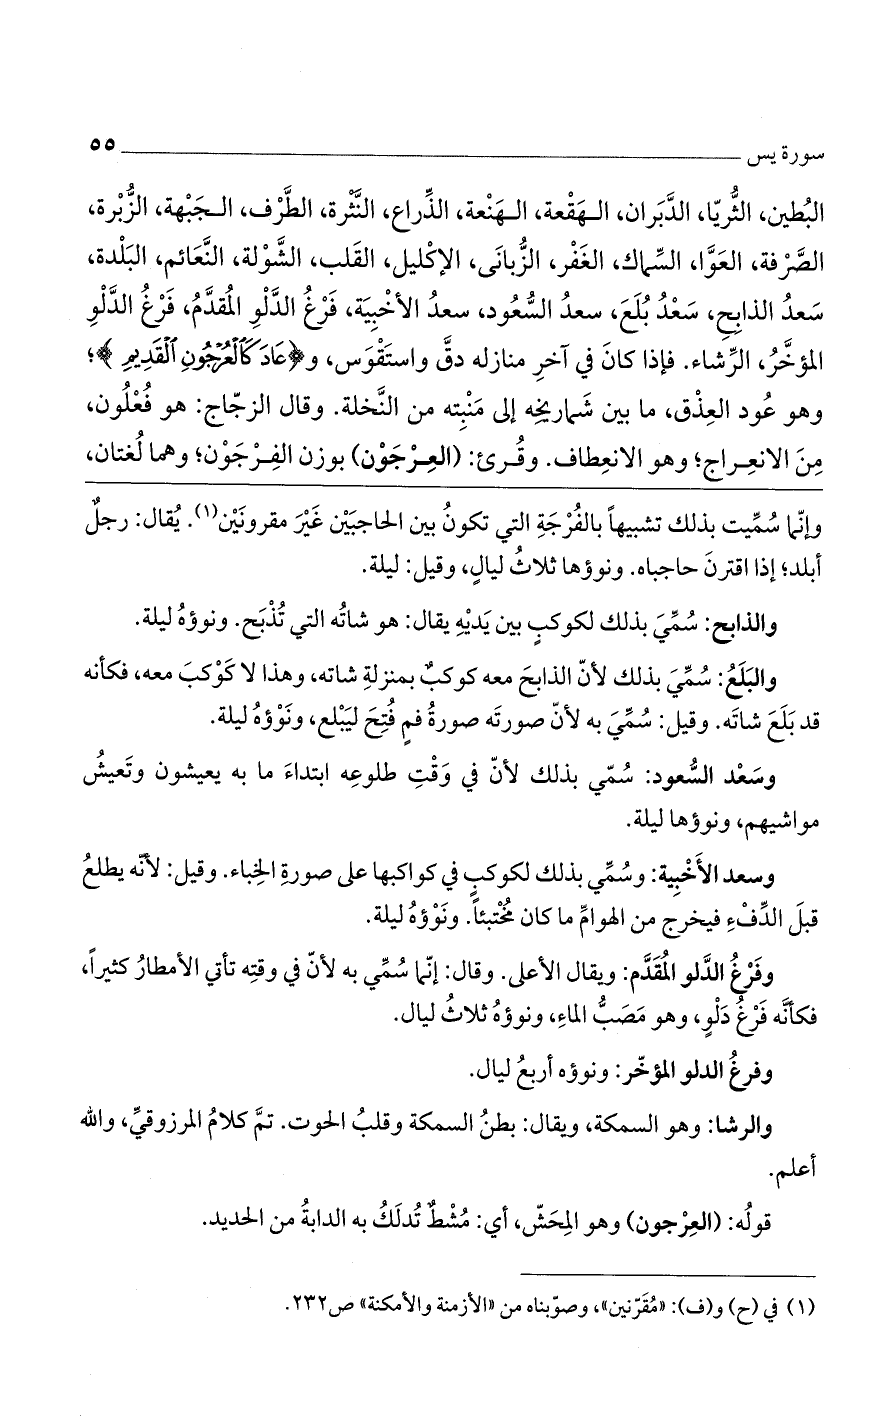 سورة يس ٥٥
البُطين، الثُّريّا، الدَّبَران، الـهَقْعة، الـهَنْعة، الذِّراع، النَّثْرة، الطَّرْف، الـجَبْهة، الزُّبْرة،
الصَّرْفة، العَوَّا، السِّماك، الغَفْر، الزُّبانَى، الإكْليل، القَلب، الشَّوْلة، النَّعائم، البَلْدة،
سَعدُ الذابحِ، سَعْدُ بُلَعَ، سعدُ السُّعُود، سعدُ الأخْبِيَة، فَرْغُ الدَّلْوِ المُقدَّمُ، فَرْغُ الدَّلْوِ
المؤخَّرُ، الرِّشاء. فإذا كانَ في آخرِ منازله دقَّ واستَقْوَس، و﴿عَادَ كَٱلْعُرْجُونِ ٱلْقَدِيمِ﴾؛
وهو عُود العِذْق، ما بين شَماريخِه إلى مَنْبِته من النَّخلة. وقال الزجّاج: هو فُعْلُون،
مِنَ الانعِـراج؛ وهو الانعِطاف. وقُـرئ: (العِـرْجَوْن) بوزن الفِـرْجَوْن؛ وهما لُغتان،
وإنّما سُمِّيت بذلك تشبيهاً بالفُرْجَةِ التي تكونُ بين الحاجبَيْن غَيْرَ مقرونَيْن(١). يُقال: رجلٌ
أبلد؛ إذا اقترنَ حاجباه. ونوؤها ثلاثُ ليالٍ، وقيل: ليلة.
والذابح: سُمِّيَ بذلك لكوكبٍ بين يَديْهِ يقال: هو شاتُه التي تُذْبَح. ونوؤهُ ليلة.
والبَلَعُ: سُمِّيَ بذلك لأنّ الذابحَ معه كوكبٌ بمنزلةِ شاته، وهذا لا كَوْكبَ معه، فكأنه
قد بَلَعَ شاتَه. وقيل: سُمِّيَ به لأنّ صورتَه صورةُ فمٍ فُتِحَ ليَبْلع، ونَوْؤهُ ليلة.
وسَعْد السُّعود: سُمّي بذلك لأنّ في وَقْتِ طلوعِه ابتداءَ ما به يعيشون وتَعيشُ
مواشيهم، ونوؤها ليلة.
وسعد الأَخْبِية: وسُمِّي بذلك لكوكبٍ في كواكبها على صورةِ الخِباء. وقيل: لأنّه يطلعُ
قبلَ الدِّفْءِ فيخرج من الهوامِّ ما كان مُخْتبئاً. ونَوْؤهُ ليلة.
وفَرْغُ الدَّلو المُقَدَّم: ويقال الأعلى. وقال: إنّما سُمِّي به لأنّ في وقتِه تأتي الأمطارُ كثيراً،
فكأنَّه فَرْغُ دَلْوٍ، وهو مَصَبُّ الماءِ، ونوؤهُ ثلاثُ ليال.
وفرغُ الدلو المؤخّر: ونوؤه أربعُ ليال.
والرشا: وهو السمكة، ويقال: بطنُ السمكة وقلبُ الحوت. تمَّ كلامُ المرزوقيِّ، والله
أعلم.
قولُه: (العِرْجون) وهو المِحَسّ، أي: مُشْطٌ تُدلَكُ به الدابةُ من الحديد.
(١) في (ح) و(ف): «مُقَرّنين»، وصوّبناه من «الأزمنة والأمكنة» ص٢٣٢.